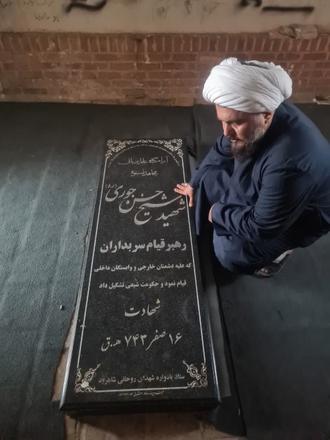 آرامگاه
مجاهد نستوه
شهید شیخ حسن جوری (ره)
رهبر قیام سربداران
که علیه دشمنان خارجی و وابستگان داخلی
قیام نمود و حکومت شیعی تشکیل داد
شهادت
۱۶ صفر ۷۴۳ هـ.ق
ستاد یادواره شهدای روحانی شاهرود